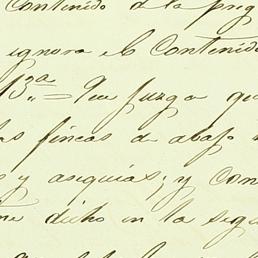 Contenido de la preg
ignora el Contenido
13ª = Que juzga qu
as fincas de abajo
s y asequias; y con
dicho en la segu